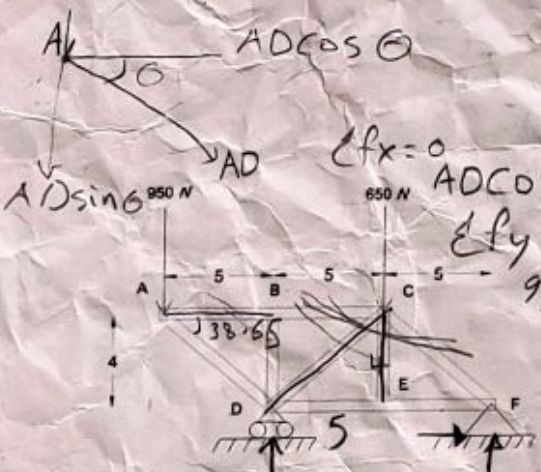 A ADCOS Θ
Θ
AD
ADsinθ
Σfx=0
ADCO
Σfy
9
950 N 650 N
5 5 5
A B C
4
E
D 5 F